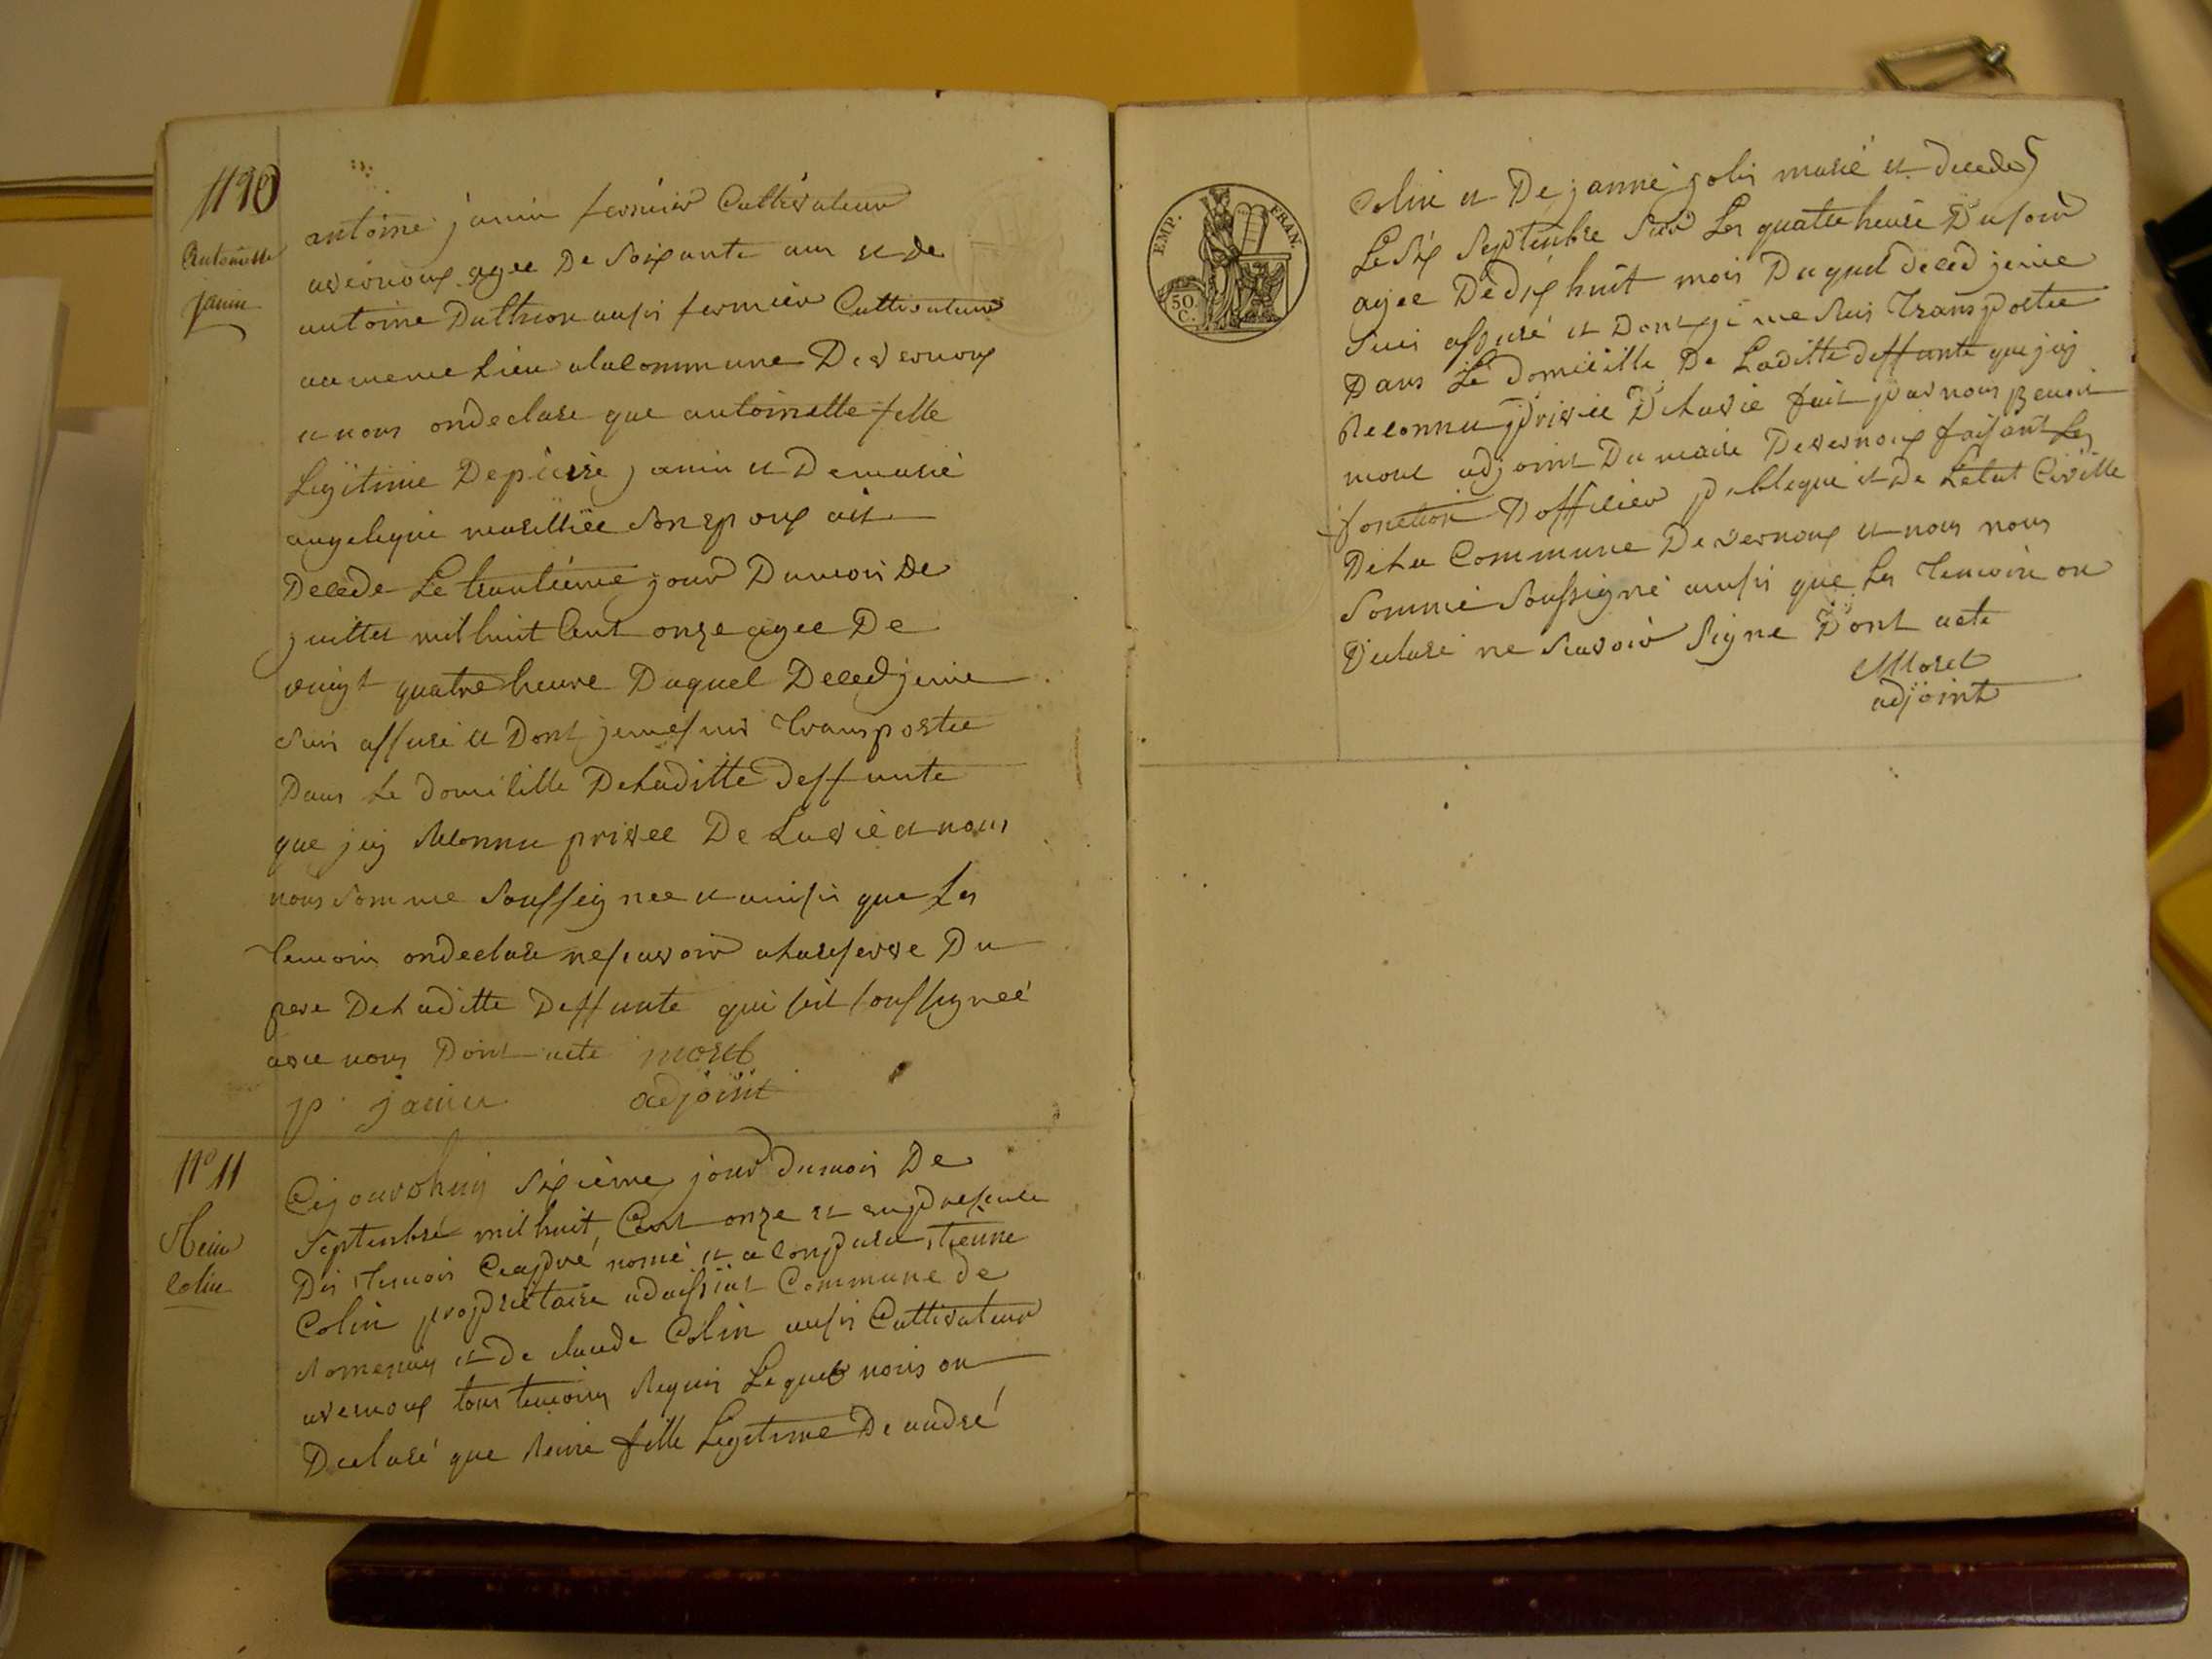 N°10
Antoinette
janin
antoine janin fermier Cultivateur
avernoux agee De Soixante ans et de
antoine Duthion aussi fermier Cultivateur
au meme Lieu alacommune Devernoux
et nous ondeclare que antoinette fille
Legitime Depierre janin et Demarie
angelique Son epoux est
Decede Le trantieme jour Dumois de
juillet mil huit Cent onze agee De
vingt quatre heure Duquel Deced jeme
Suis assuré et Dont jemesuis transportee
Dans Le domicille Deladitte deffunte
que jey Reconnu privee De Lavie et nous
nous Somme Soussignee et ainssi que Les
temoin ondeclare nesavoir alareserve Du
pere Deladitte Deffunte qui sest soussigneé
avec nous Dont acte morel
p. janin adjoint
N° 11
Reine
Colin
Cejourdhuy Sixième jour dumois De
Septembre mil huit Cent onze et en presence
Des temoin Ceapré nomé et a conparu etienne
Colin propriétaire Commune de
Romenay et De claude Colin aussi Cultivateur
avernoux tous temoins Requis Lequel nous on
Declaré que Reine fille Legitime De andré
EMP. FRAN.
50. C.
Colin et De janne joly marié et decedes
Le Six Septenbre Sur Les quatre heure Dusoir
agee De dix huit mois Duquel deced jeme
Suis assuré et Dont je me Suis transportee
Dans Le domicille De Laditte deffunte que jey
Reconnu privee Delavie fait par nous Benoit
morel adjoint Du maire Devernoux faisant Les
fonction Dofficier publique et De Letat Civille
Dela Commune Devernoux et nous nous
Somme Soussigné ainssi que Les temoin on
Declaré ne Savoir Signe Dont acte
Morel
adjoint